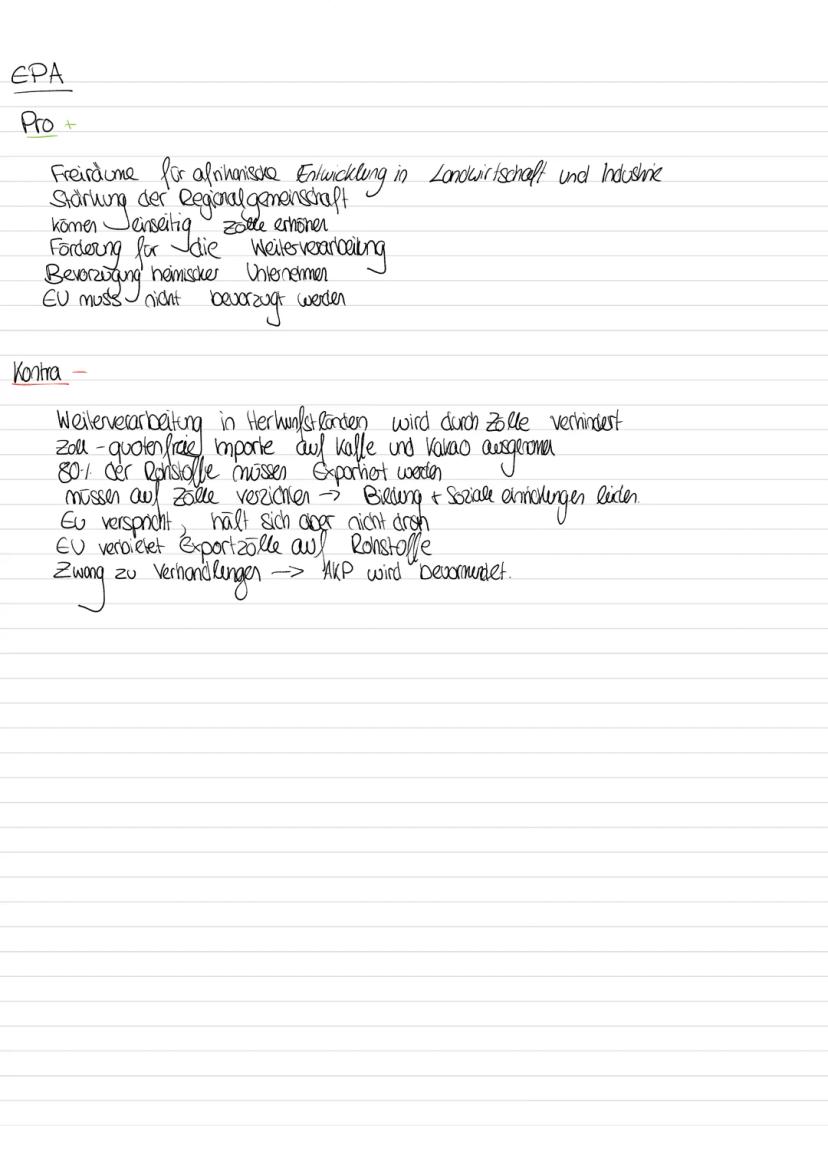 EPA
Pro +
Freiräume für afrikanische Entwicklung in Landwirtschaft und Industrie
Stärkung der Regionalgemeinschaft
können einseitig Zölle erhöhen
Förderung für die Weiterverarbeitung
Bevorzugung heimischer Unternehmen
EU muss nicht bevorzugt werden
Kontra -
Weiterverarbeitung in Herkunfstländen wird durch Zölle verhindert
Zoll-quotenfreie Importe auf Kaffe und Kakao ausgenomen
80% der Rohstoffe müssen Exportiert werden
müssen auf Zölle verzichten -> Bildung + Soziale einrichtungen leiden.
EU verspricht, hält sich aber nicht dran
EU verbietet Exportzölle auf Rohstoffe
Zwang zu Verhandlungen --> AKP wird bevormundet.